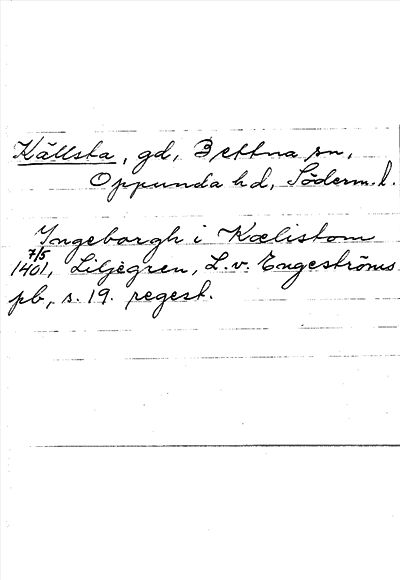 Källsta, gd, Bettna sn,
Oppunda hd, Söderm. l.
Yngeborgh i Kælistom
7/5
1401, Liljegren, L. v. Engeströms
pb, s. 19. regest.